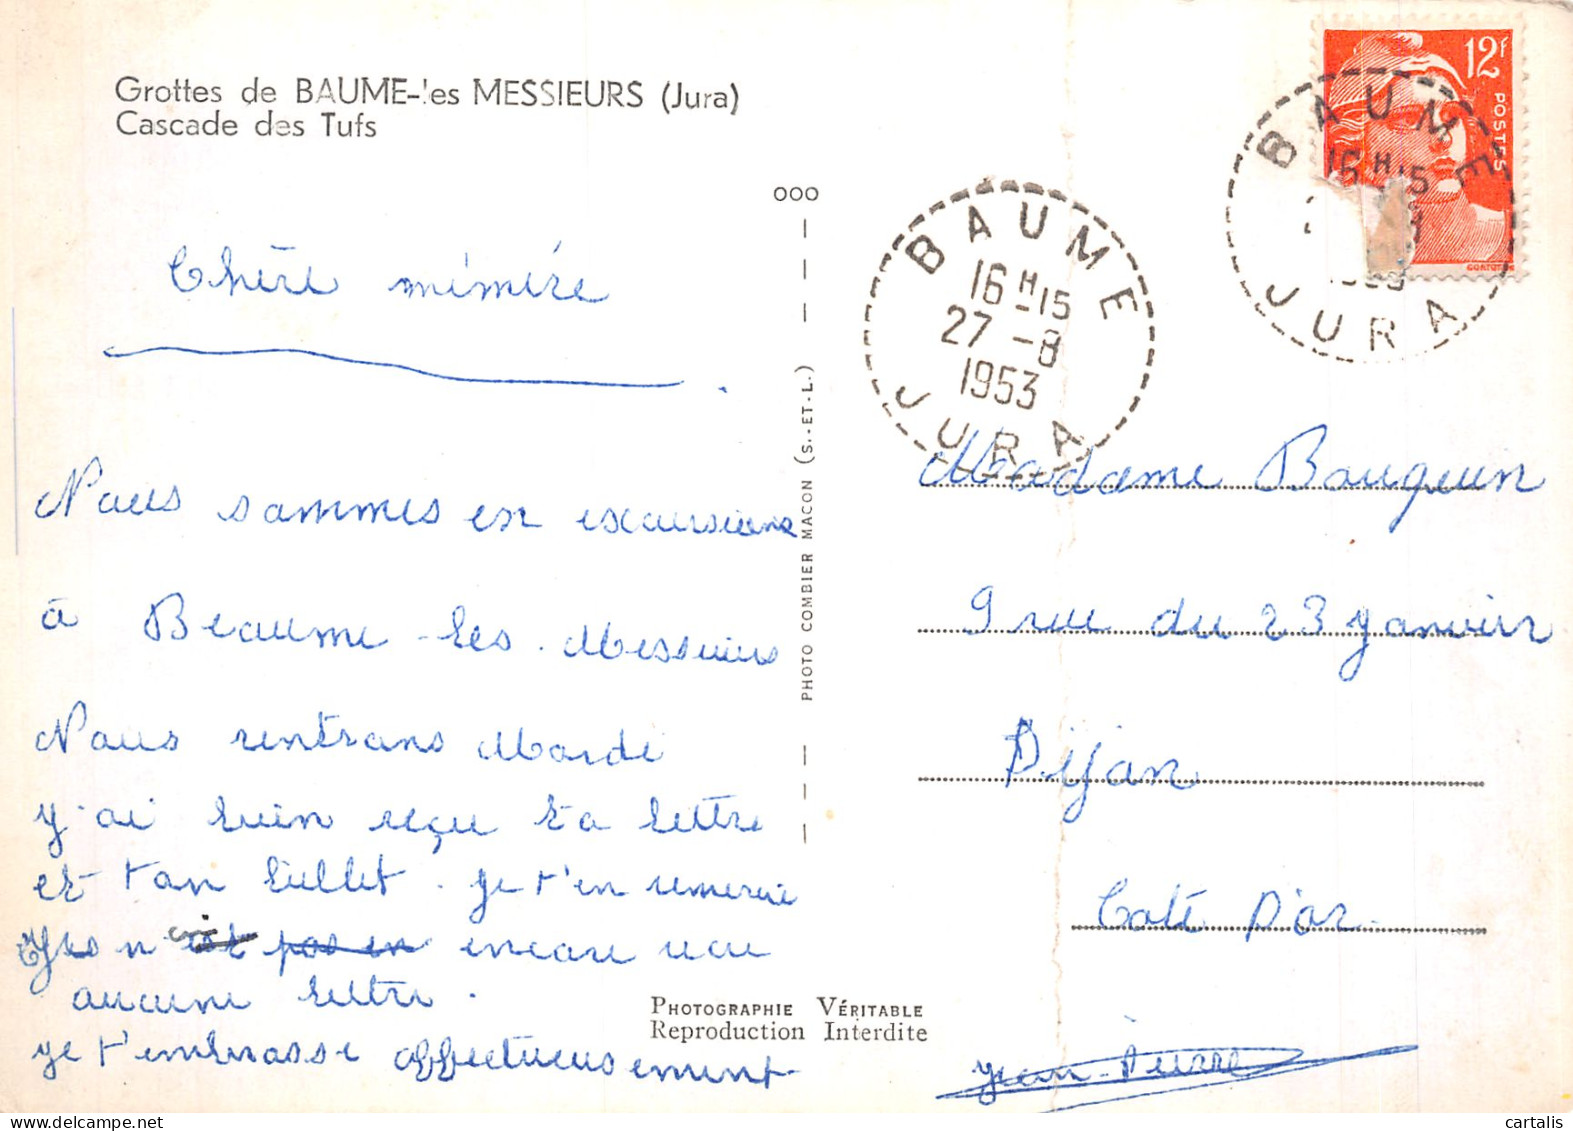 Grottes de BAUME-les MESSIEURS (Jura)
Cascade des Tufs
12F
POSTES
BAUME
16H15
JURA
BAUME
16H15
27-8
1953
JURA
000
Chère mémère
Nous sommes en excursions
à Beaume-les-Messieurs
Nous rentrons Mardi
j'ai bien reçu ta lettre
et ton billet. je t'en remercie
n'ai pas en encore reçu
aucune lettre.
je t'embrasse affectueusement
Jean-Pierre
PHOTO COMBIER MACON (S.-ET-L.)
Madame Bouguin
9 rue du 23 Janvier
Dijon
Coté D'or
PHOTOGRAPHIE VÉRITABLE
Reproduction Interdite
cartalis